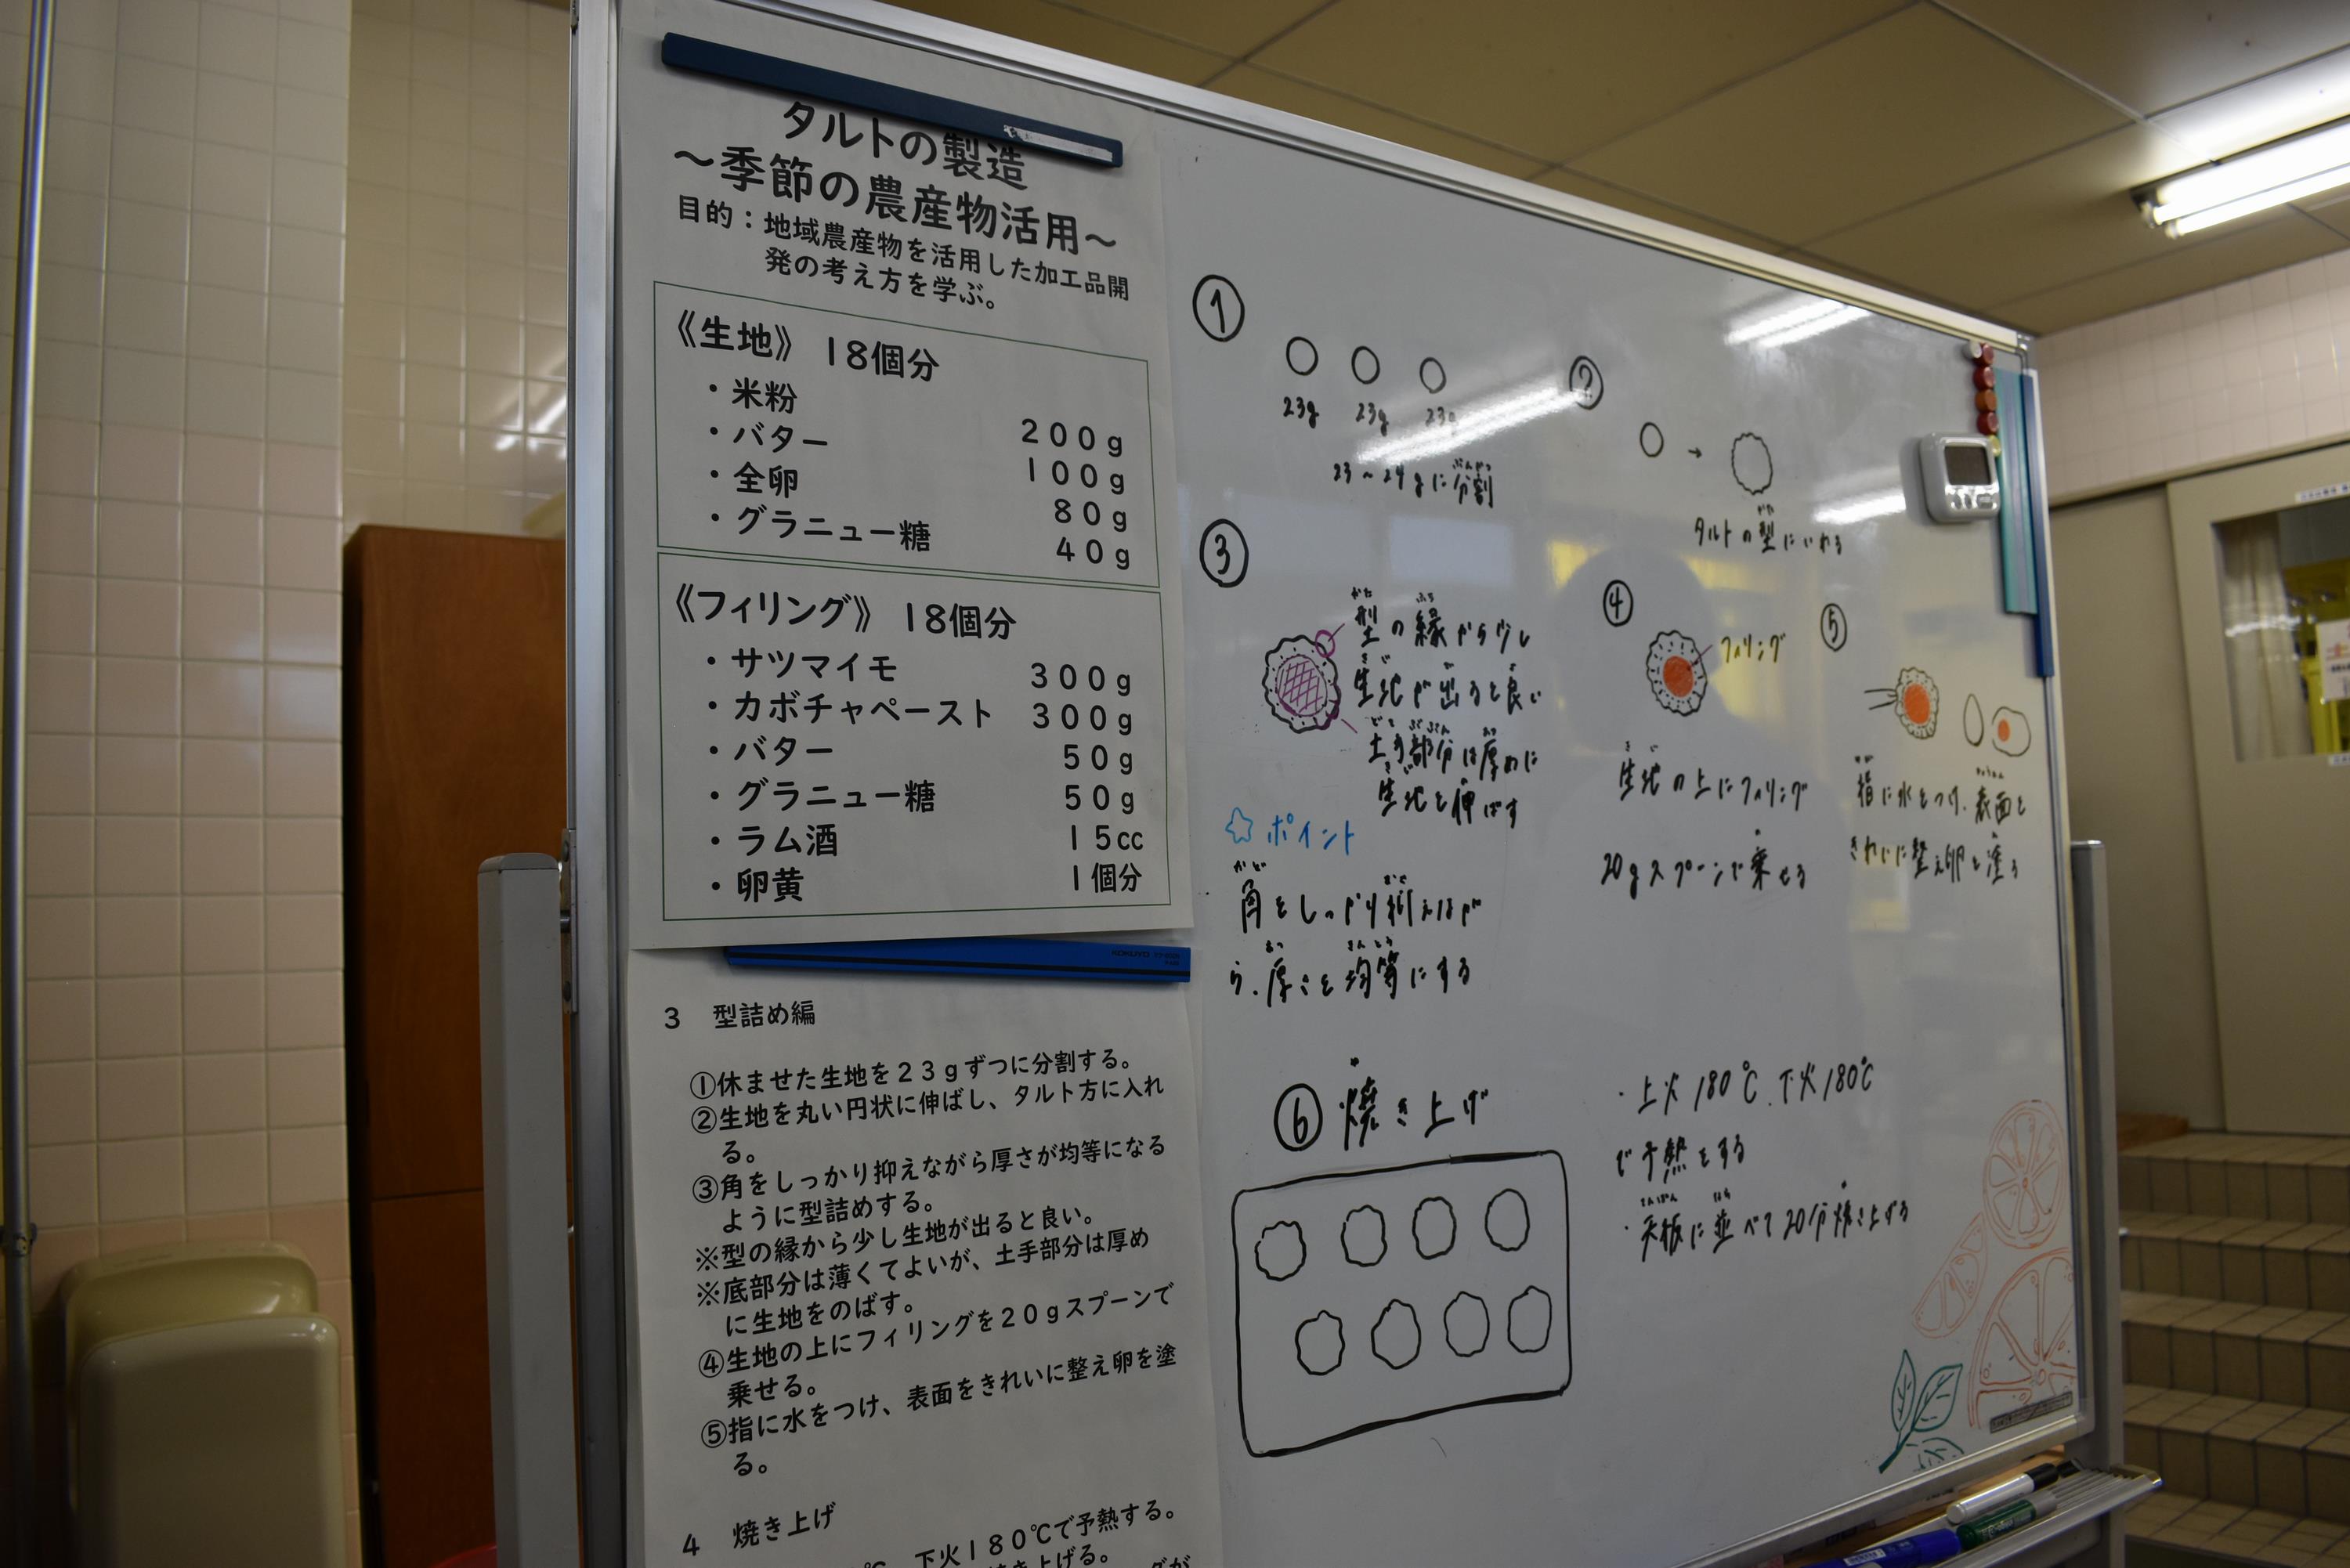 タルトの製造
～季節の農産物活用～
目的：地域農産物を活用した加工品開
発の考え方を学ぶ。
《生地》 18個分
・米粉 200g
・バター 100g
・全卵 80g
・グラニュー糖 40g
《フィリング》 18個分
・サツマイモ 300g
・カボチャペースト 300g
・バター 50g
・グラニュー糖 50g
・ラム酒 15cc
・卵黄 1個分
KOKUYO
3 型詰め編
①休ませた生地を23gずつに分割する。
②生地を丸い円状に伸ばし、タルト方に入れ
る。
③角をしっかり抑えながら厚さが均等になる
ように型詰めする。
※型の縁から少し生地が出ると良い。
※底部分は薄くてよいが、土手部分は厚め
に生地をのばす。
④生地の上にフィリングを20gスプーンで
乗せる。
⑤指に水をつけ、表面をきれいに整え卵を塗
る。
4 焼き上げ
℃ 下火180℃で予熱する。
き上げる。
①
23g 23g 23g
ぶんかつ
23～24gに分割
②
かた
タルトの型にいれる
③
かた ふち
型の縁から少し
きじ で よ
生地が出ると良い
どて ぶぶん あつ
土手部分は厚めに
きじ の
生地を伸ばす
ポイント
かど おさ
角をしっかり抑えなが
あつ きんとう
ら、厚さを均等にする
④
フィリング
きじ
生地の上にフィリング
の
20gスプーンで乗せる
⑤
ゆび ひょうめん
指に水をつけ、表面を
きれいに整え卵を塗る
⑥焼き上げ
・上火180℃、下火180℃
で予熱をする
てんぱん なら
・天板に並べて20分焼き上げる